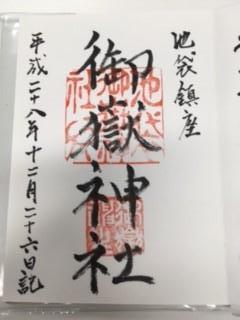 池袋鎮座
御嶽神社
平成二十八年十二月二十六日記